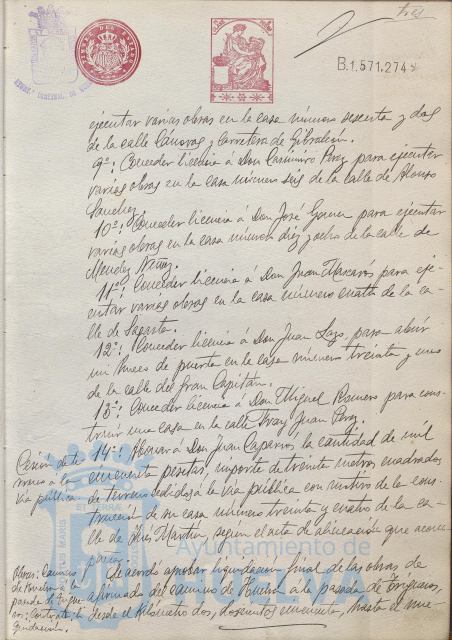 tres
B.1,571,274
ejecutar varias obras en la casa número sesenta y dos
de la calle Cánovas y Carretera de Gibraleón.
9º: Conceder licencia á Don Casimiro Perez para ejecutar
varias obras en la casa número seis de la calle de Alonso
Sanchez.
10º: Conceder licencia á Don José para ejecutar
varias obras en la casa número diez y ocho de la calle de
Mendez Nuñez.
11º: Conceder licencia á Don Juan para eje-
cutar varias obras en la casa número cuatro de la ca-
lle de Sagasta.
12º: Conceder licencia á Don Juan Lazo, para abrir
un hueco de puerta en la casa número treinta y uno
de la calle del Gran Capitán.
13º: Conceder licencia á Don Miguel Romero para cons-
truir una casa en la calle Fray Juan Perez.
Cesión de te-
rrenos á la
vía pública
14º: Abonar á Don Juan Caparrós la cantidad de mil
cincuenta pesetas, importe de treinta metros cuadrados
de terreno cedidos á la vía pública con motivo de la cons-
trucción de su casa número treinta y cuatro de la ca-
lle de San Martín, según el acta de alineación que acom-
paña.
Obras: Camino
de Huelva á la
pasada de Trigue-
ros:
Se acordó aprobar liquidación final de las obras de
afirmado del camino de Huelva á la pasada de Trigueros,
desde el kilómetro dos, doscientos cincuenta, hasta el
Ayuntamiento de
HUELVA